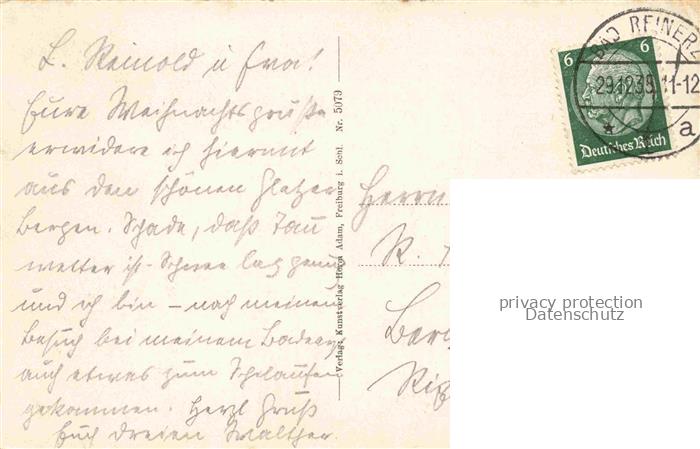 L. Reinold u Eva!
Eure Weihnachtsgrüße
erwidere ich hiermit
aus den schönen Glatzer
Bergen. Schade, daß Tau
wetter ist. Schnee lag genug
und ich bin – nach meinem
Besuch bei meinem Badearzt
auch etwas zum Schilaufen
gekommen. Herzl Gruß
Euch dreien Walther.
Verlag: Kunstverlag Herm Adam, Freiburg i. Schl. Nr. 5079
BAD REINERZ
29.12.38. 11-12
a
6 6
Deutsches Reich
Herrn
R.
privacy protection
Datenschutz